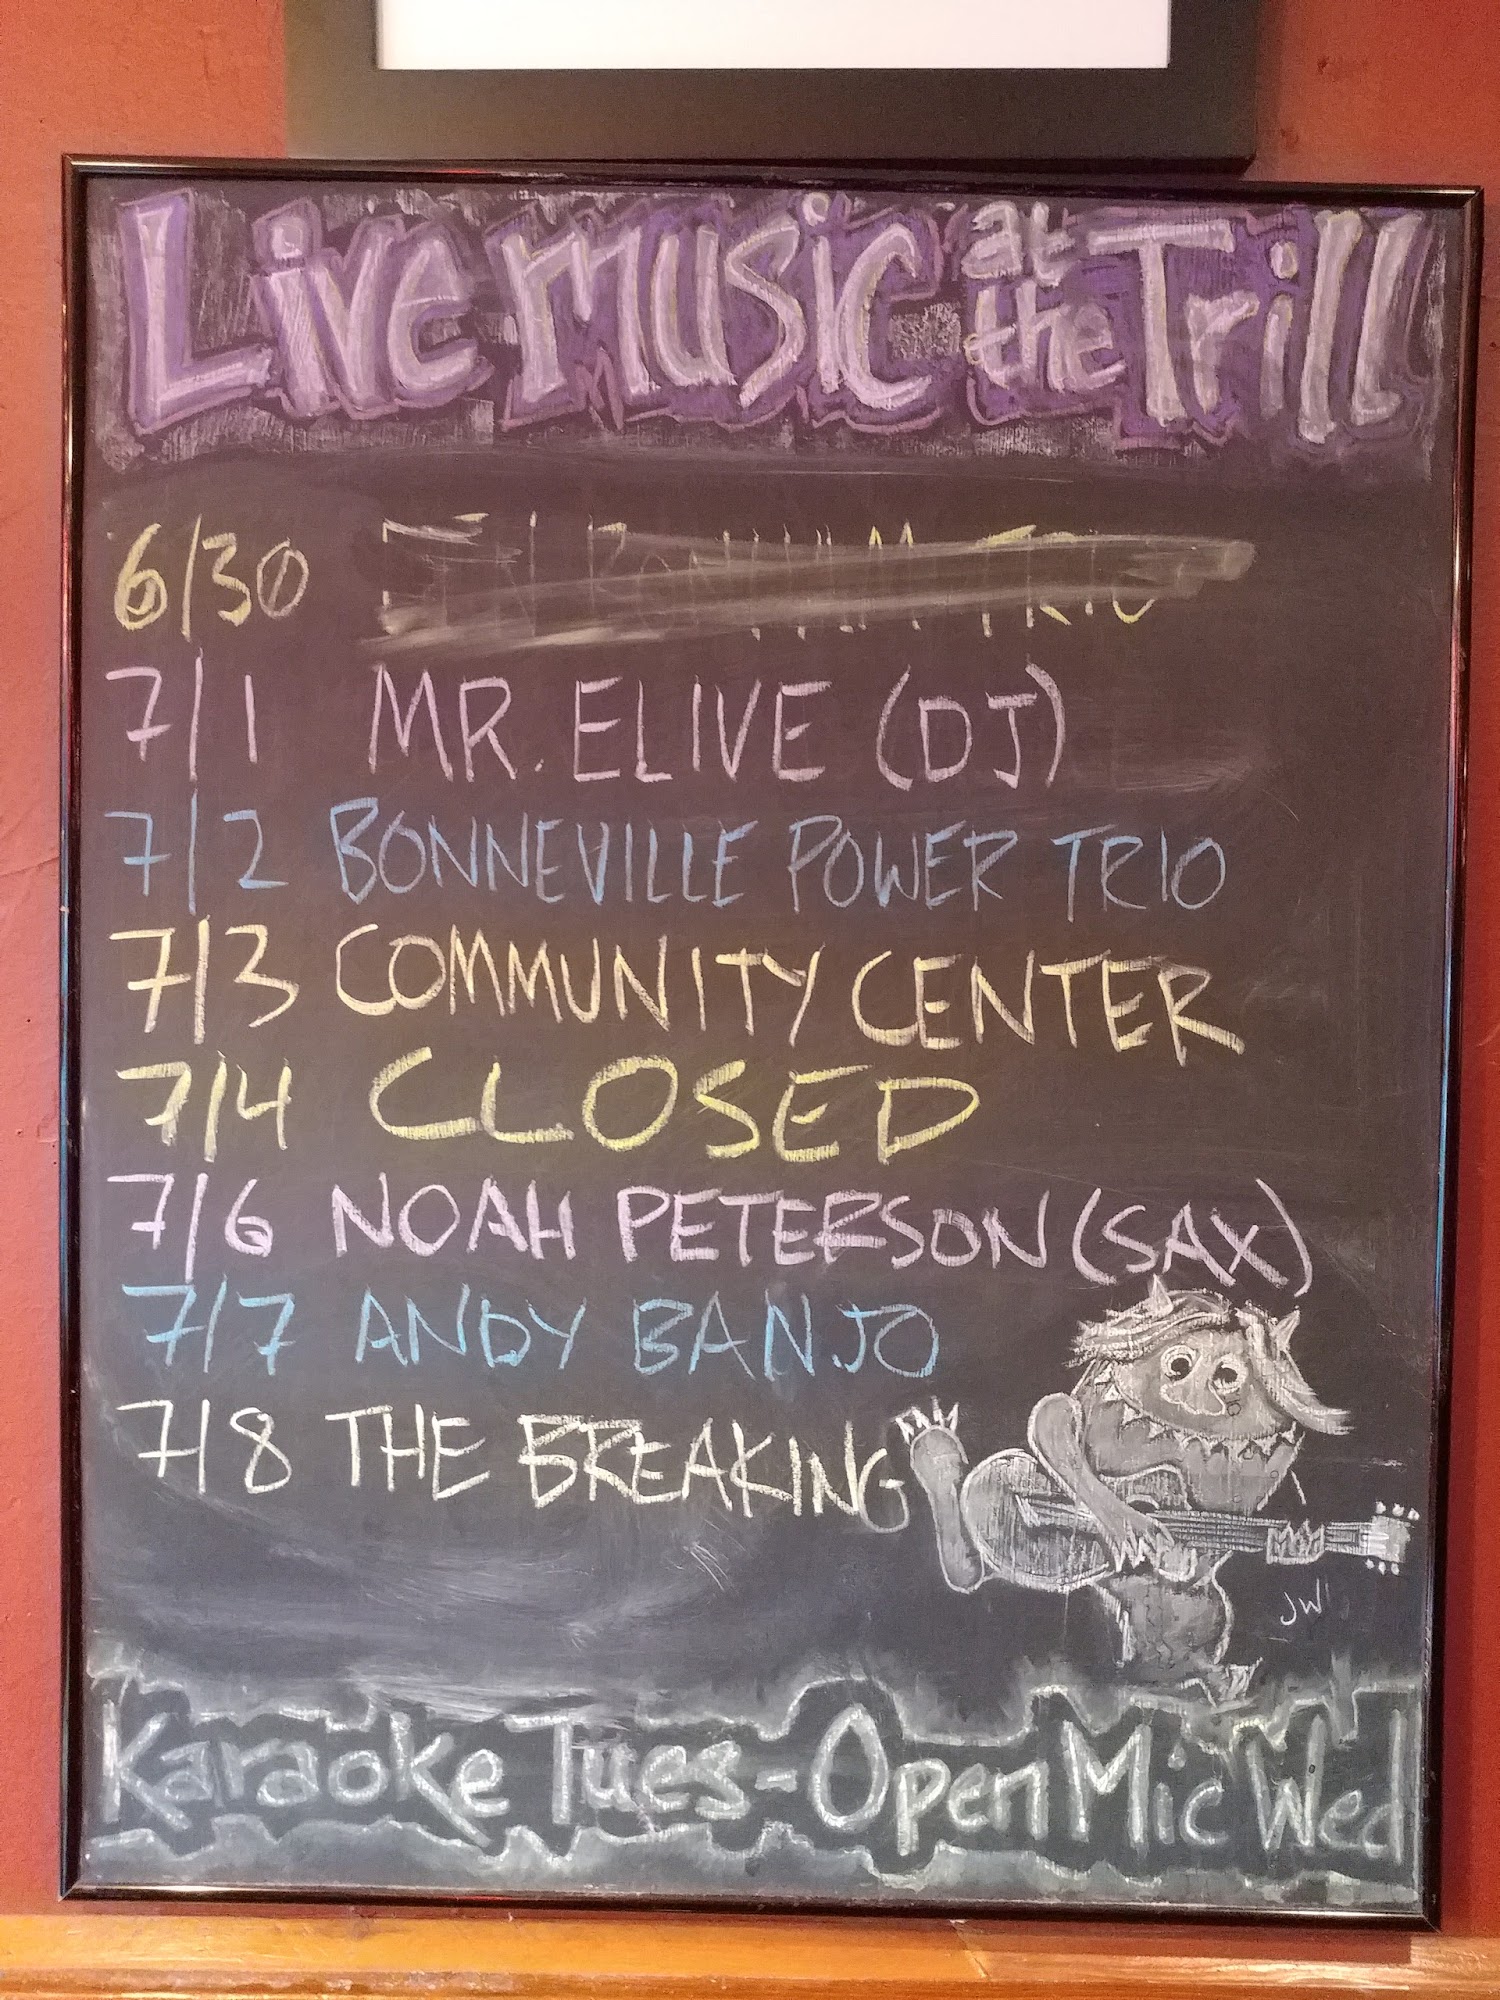 Live music at the Trill
6/30 TRIO
7/1 MR. ELIVE (DJ)
7/2 BONNEVILLE POWER TRIO
7/3 COMMUNITY CENTER
7/4 CLOSED
7/6 NOAH PETERSON (SAX)
7/7 ANDY BANJO
7/8 THE BREAKING
JW
Karaoke Tues - Open Mic Wed